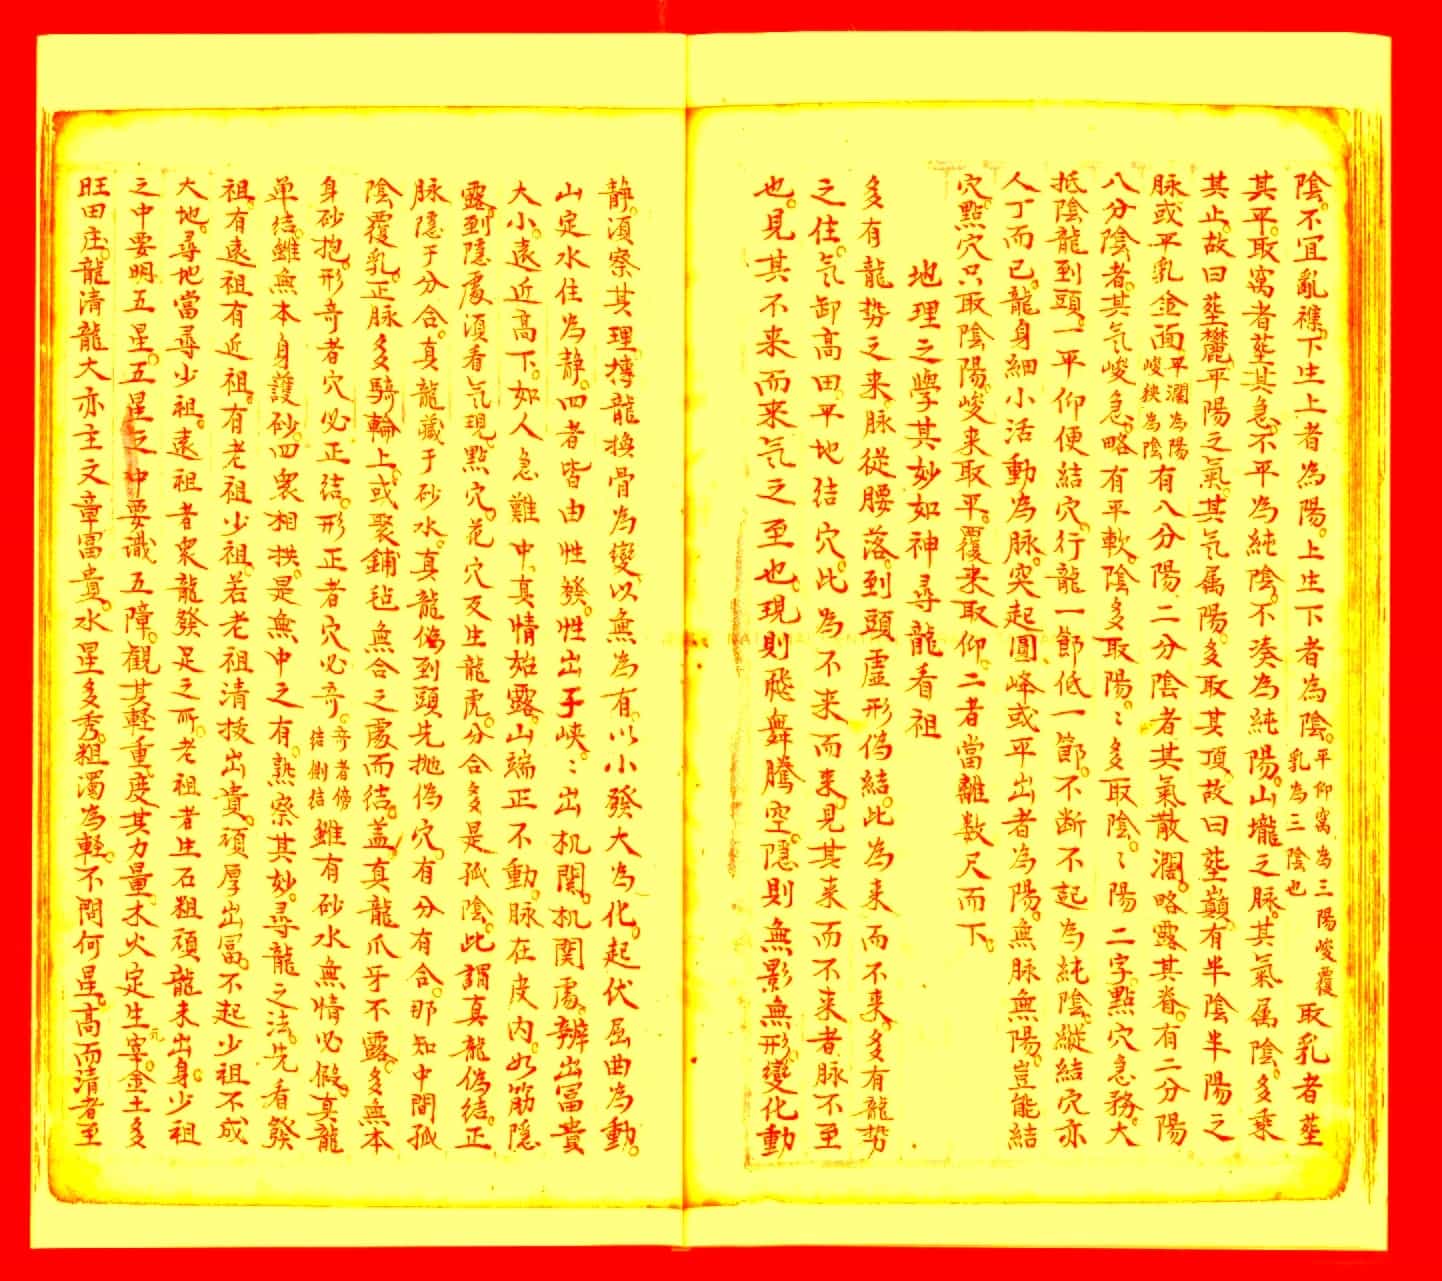 陰。不宜亂襍。下生上者為陽。上生下者為陰。平仰窩為三陽峻覆乳為三陰也取乳者塟
其平。取窩者塟其急。不平為純陰。不湊為純陽。山壠之脉。其氣属陰。多乘
其止。故曰塟麓。平陽之氣。其気属陽。多取其頂。故曰塟巔。有半陰半陽之
脉或平乳金面平濶為陽峻狹為陰有八分陽二分陰者其氣散濶。略露其脊。有二分陽
八分陰者。其气峻急。略有平軟。陰多取陽。〻多取陰。〻陽二字。點穴急務。大
抵陰龍到頭。一平仰便結穴。行龍一節低一節。不断不起為純陰。縱結穴亦
人丁而已。龍身細小活動為脉。突起圓峰或平出者為陽。無脉無陽。豈能結
穴。點穴只取陰陽。峻来取平。覆来取仰。二者當離数尺而下。
地理之學其妙如神尋龍看祖
多有龍势之来脉從腰落。到頭虛形偽結。此為来而不来。多有龍势
之住。气卸高田。平地结穴。此為不来而来。見其来而不来者脉不至
也。見其不来而来气之至也。現則飛舞騰空。隱則無影無形。變化動
静。須察其理。摶龍換骨為變。以無為有。以小發大為化。起伏屈曲為動。
山定水住為静。四者皆由性發。性出子峡。〻出机関。机関處。辨出冨貴
大小。遠近高下。如人急難中。真情始露。山端正不動。脉在皮内。如筋隱
露。到隱處須看气現。點穴。花穴及生龍虎。分合多是孤陰。此謂真龍偽结。正
脉隱于分合。真龍藏于砂水。真龍偽到頭先抛偽穴。有分有合。那知中間孤
陰覆乳。正脉多騎輪上。或聚鋪毡無合之處而结。盖真龍爪牙不露。多無本
身砂抱。形奇者穴必正结。形正者穴必奇。奇者傍结倒结雖有砂水無情必假。真龍
单结。雖無本身護砂。四衆相拱。是無中之有。熟察其妙。尋龍之法。先看發
祖。有遠祖有近祖。有老祖少祖。若老祖清拔出貴。頑厚出冨。不起少祖不成
大地。尋地當尋少祖。遠祖者衆龍發足之所。老祖者生石粗頑龍未出身。少祖
之中要明五星。五星之中要識五障。觀其輕重。度其力量。木火定生宰元。金土多
旺田庄。龍清龍大亦主文章冨貴。水星多秀。粗濁為輕。不問何星。高而清者至